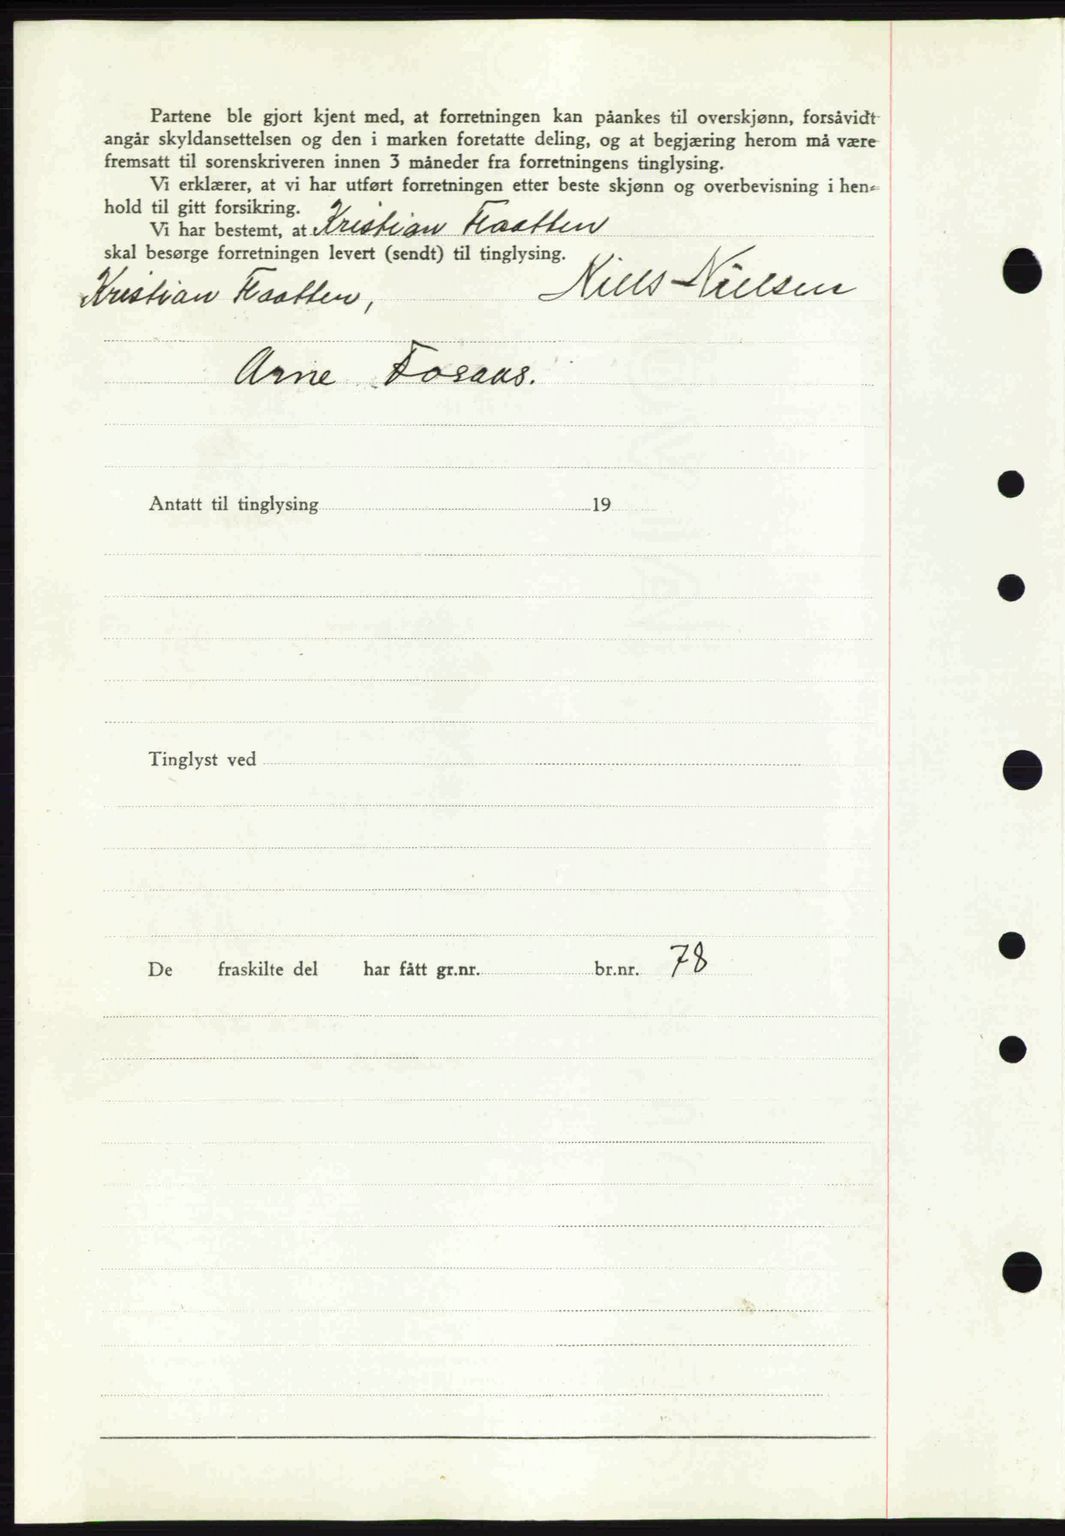 Partene ble gjort kjent med, at forretningen kan påankes til overskjønn, forsåvidt
angår skyldansettelsen og den i marken foretatte deling, og at begjæring herom må være
fremsatt til sorenskriveren innen 3 måneder fra forretningens tinglysing.
Vi erklærer, at vi har utført forretningen etter beste skjønn og overbevisning i hen=
hold til gitt forsikring.
Vi har bestemt, at Kristian Flaatten
skal besørge forretningen levert (sendt) til tinglysing.
Kristian Flaatten, Niels Nielsen
Arne Fosaas.
Antatt til tinglysing 19
Tinglyst ved
De fraskilte del har fått gr.nr. br.nr. 78